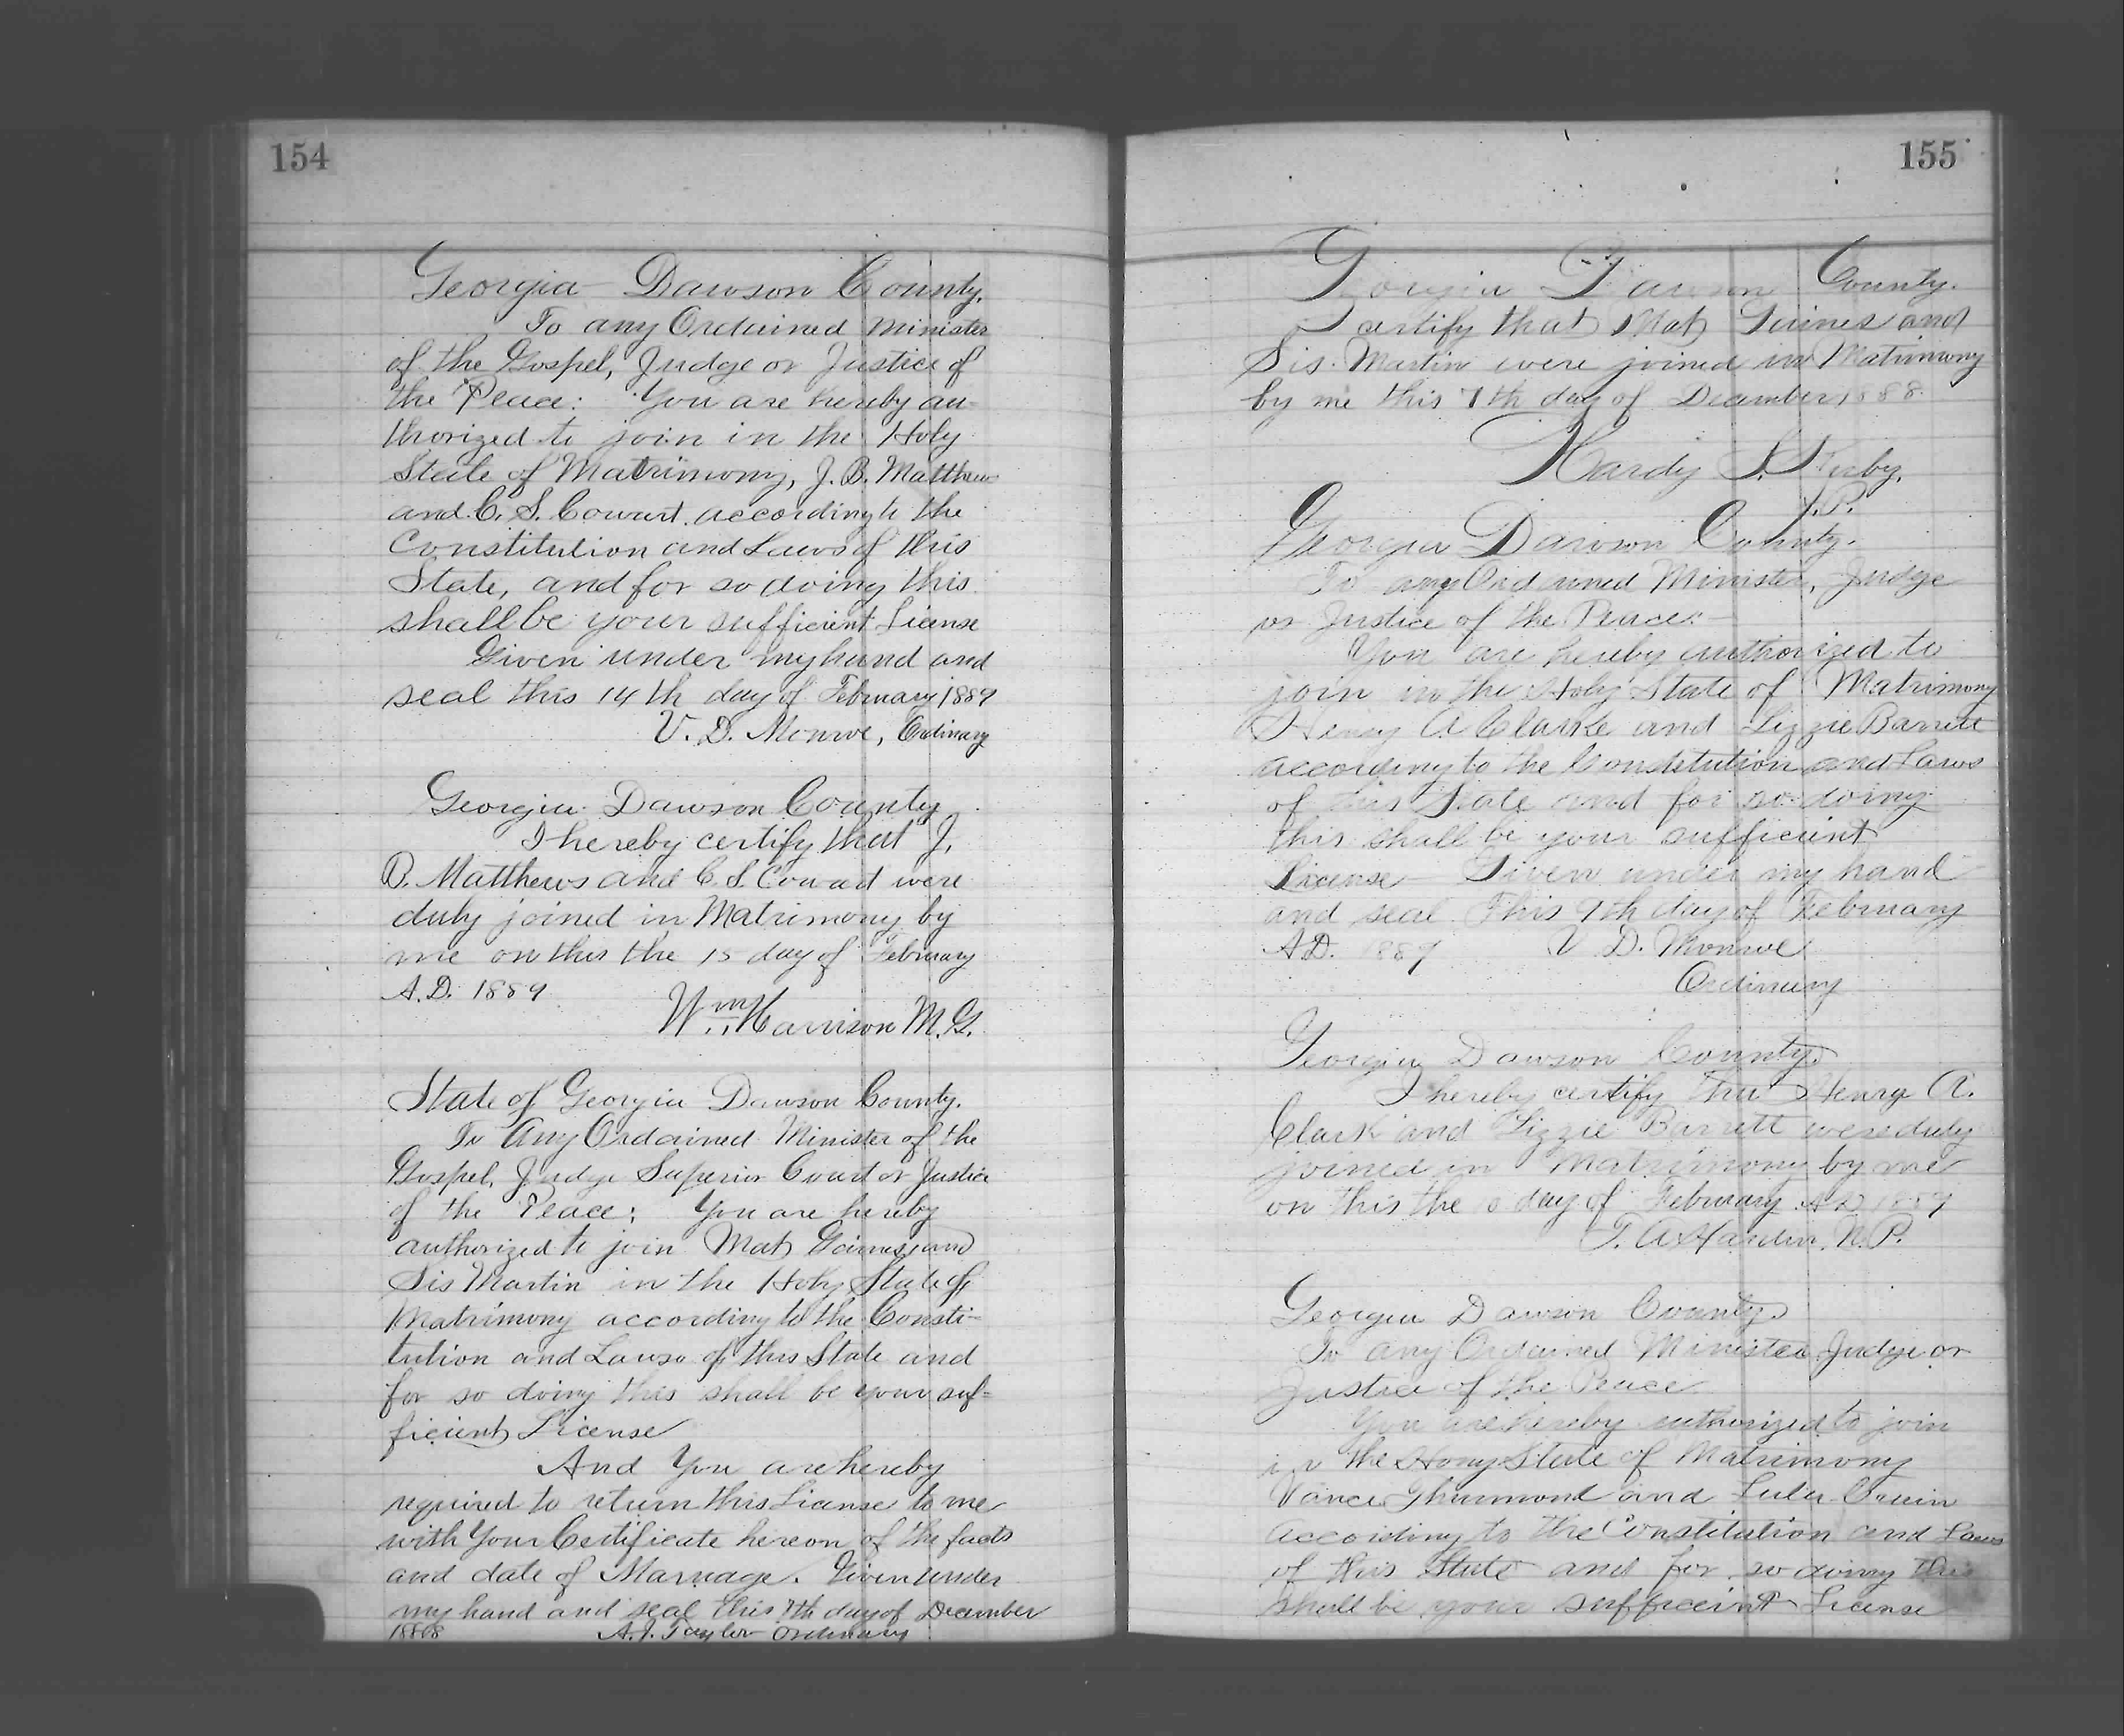 154
Georgia Dawson County,
To any Ordained Minister
of the Gospel, Judge or Justice of
the Peace: You are hereby au-
thorized to join in the Holy
State of Matrimony, J. B. Matthews
and C. S. Cowart according to the
Constitution and Laws of this
State, and for so doing this
shall be your sufficient License
Given under my hand and
seal this 14th day of February 1889
V. D. Monroe, Ordinary
Georgia Dawson County
I hereby certify that J.
B. Matthews and C S Cowart were
duly joined in Matrimony by
me on this the 15 day of February
A.D. 1889
Wm Harrison M.G.
State of Georgia Dawson County.
To Any Ordained Minister of the
Gospel, Judge Superior Court or Justice
of the Peace: You are hereby
authorized to join Mat Gaines and
Sis Martin in the Holy State of
Matrimony according to the Consti-
tution and Laws of this State and
for so doing this shall be your suf=
ficient License
And You are hereby
required to return this License to me
with Your Certificate hereon of the facts
and date of Marriage. Given under
my hand and seal this 7th day of December
1888 A. J. Taylor Ordinary
155
Georgia Dawson County.
I certify that Mat Gaines and
Sis. Martin were joined in Matrimony
by me this 7th day of December 1888.
Hardy S. Kirby,
J.P.
Georgia Dawson County.
To any Ordained Minister, Judge
or Justice of the Peace:-
You are hereby authorized to
join in the Holy State of Matrimony
Henry A Clarke and Lizzie Barrett
according to the Constitution and Laws
of this State and for so doing
this shall be your sufficient
License Given under my hand
and seal This 9th day of February
A.D. 1889 V. D. Monroe
Ordinary
Georgia Dawson County.
I hereby certify that Henry A.
Clark and Lizzie Barrett were duly
joined in Matrimony by me
on this the 10 day of February A.D 1889
T. A Hardin, N.P.
Georgia Dawson County.
To any Ordained Minister Judge or
Justice of the Peace
You are hereby authorized to join
in the Holy State of Matrimony
Vance Thurmond and Lula
according to the Constitution and Laws
of this State and for so doing this
shall be your sufficient License